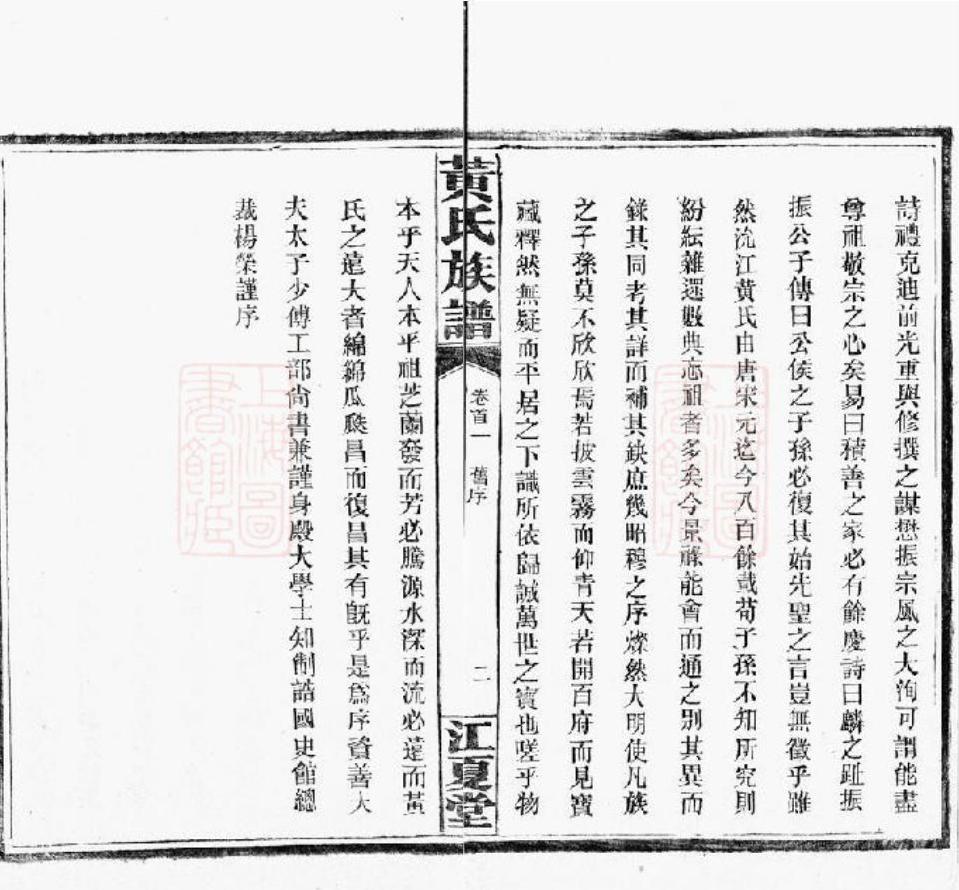 詩禮克迪前光重與修撰之謀懋振宗風之大洵可謂能盡
尊祖敬宗之心矣易曰積善之家必有餘慶詩曰麟之趾振
振公子傳曰公侯之子孫必復其始先聖之言豈無徵乎雖
然沇江黃氏由唐宋元迄今八百餘載荀子孫不知所究則
紛紜雜遝數典忘祖者多矣今景祿能會而通之別其異而
錄其同考其詳而補其缺庶幾昭穆之序燦然大明使凡族
之子孫莫不欣欣焉若披雲霧而仰青天若開百府而見寶
藏釋然無疑而平居之下識所依歸誠萬世之寶也嗟乎物
黃氏族譜
卷首一 舊序
二
江夏堂
本乎天人本乎祖芝蘭發而芳必騰源水深而流必遠而黃
氏之遠大者綿綿瓜瓞昌而復昌其有旣乎是爲序資善大
夫太子少傅工部尙書兼謹身殿大學士知制誥國史館總
裁楊榮謹序
上海圖書館藏